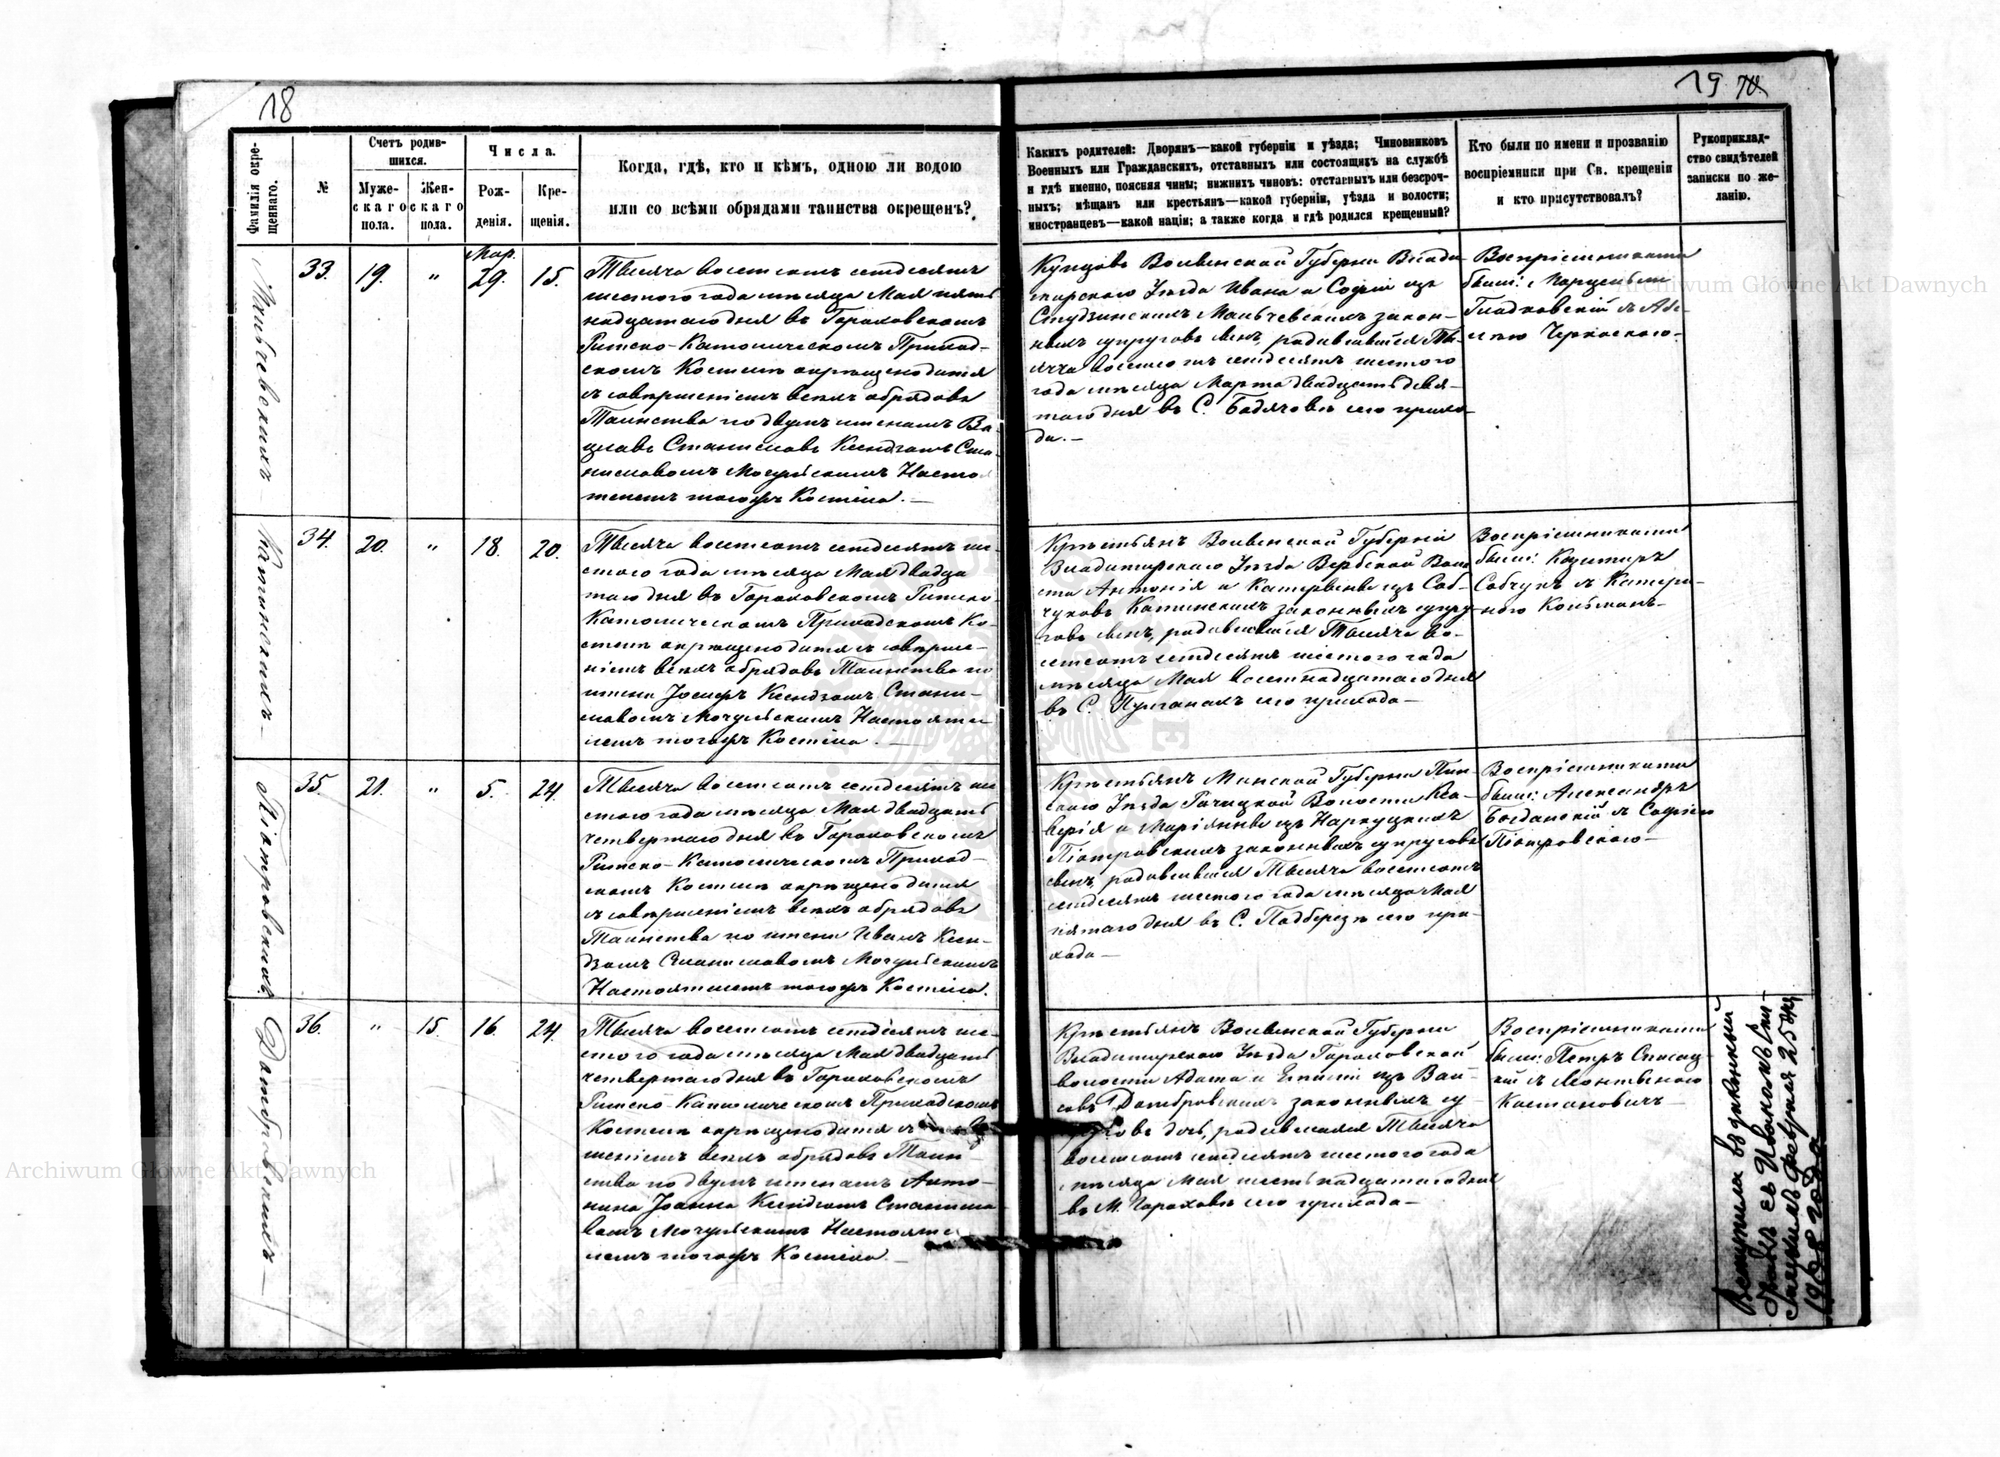 18
Фамилія окре-
щеннаго.
№
Счетъ родив-
шихся.
Муже-
скаго
пола.
Жен-
скаго
пола.
Числа.
Рож-
денія.
Кре-
щенія.
Когда, гдѣ, кто и кѣмъ, одною ли водою
или со всѣми обрядами таинства окрещенъ?
33.
19.
"
Мар.
29.
15.
Тысяча восемсотъ семдесятъ
шестого года мѣсяца Мая пят-
надцатаго дня въ Гороховскомъ
Римско-Католическомъ Приход-
скомъ Костелѣ окрещено дитя
съ совершеніемъ всехъ обрядовъ
Таинства по двумъ именамъ Ва-
цлавъ Станиславъ Ксендзомъ Ста-
ниславомъ Мочульскимъ Настоя
телемъ тогожъ Костела.—
Каминскихъ—
34.
20.
"
18.
20.
Тысяча восемсотъ семдесятъ ше-
стого года мѣсяца Мая двадца
таго дня въ Гороховскомъ Римско-
Католическомъ Приходскомъ Ко-
стелѣ окрещено дитя съ соверше-
ніемъ всехъ обрядовъ Таинства по
имени Іосифъ Ксендзомъ Стани-
славомъ Мочульскимъ Настояте-
лемъ тогожъ Костела.—
Піотровскихъ
35.
21.
"
5.
24.
Тысяча восемсотъ семдесятъ ше-
стого года мѣсяца Мая двадцать
четвертаго дня въ Гороховскомъ
Римско-Католическомъ Приход-
скомъ Костелѣ окрещено дитя
съ совершеніемъ всехъ обрядовъ
Таинства по имени Иванъ Ксен-
дзомъ Станиславомъ Мочульскимъ
Настоятелемъ тогожъ Костела.
Домбровскихъ—
36.
"
15.
16.
24.
Тысяча восемсотъ семдесятъ ше-
стого года мѣсяца Мая двадцать
четвертаго дня въ Гороховскомъ
Римско-Католическомъ Приходскомъ
Костелѣ окрещено дитя съ
шеніемъ всехъ обрядовъ Таин-
ства по двумъ именамъ Анто-
нина Іоанна Ксендзомъ Станисла
вомъ Мочульскимъ Настояте
лемъ тогожъ Костела.—
19
Какихъ родителей: Дворянъ—какой губерніи и уѣзда; Чиновниковъ
Военныхъ или Гражданскихъ, отставныхъ или состоящихъ на службѣ
и гдѣ именно, поясняя чины; нижнихъ чиновъ: отставныхъ или безсроч-
ныхъ; мѣщанъ или крестьянъ—какой губерніи, уѣзда и волости;
иностранцевъ—какой націи; а также когда и гдѣ родился крещенный?
Кто были по имени и прозванію
воспріемники при Св. крещеніи
и кто присутствовалъ?
Рукоприклад-
ство свидѣтелей
записки по же-
ланію.
Купцовъ Волынской Губерни Влади
мирского Уезда Ивана и Софіи изъ
Студзинскихъ закон-
ныхъ супруговъ сынъ, родившійся Ты-
сяча восемсотъ семдесятъ шестого
года мѣсяца Марта двадцать девя-
таго дня въ С. сего прихо-
да.—
Воспріемниками
были:
Гладковскій съ

Крестьянъ Волынской Губерніи
Владимирского Уезда Вербской Воло
сти Антонія и изъ Соб-
чуковъ Каминскихъ законныхъ супру-
говъ сынъ, родившійся Тысяча во-
семсотъ семдесятъ шестого года
мѣсяца Мая восемнадцатаго дня
въ С. сего прихода—
Воспріемниками
были: Казимиръ
Собчукъ съ Катери-
ною
Крестьянъ Минской Губерни Пин-
ского Уезда Волости Кса-
верія и Маріянны изъ
Піотровскихъ законныхъ супруговъ
сынъ, родившійся Тысяча восемсотъ
семдесятъ шестого года мѣсяца Мая
пятаго дня въ С. Подберезѣ сего при-
хода—
Воспріемниками
были: Александръ
Богданскій съ Софіею
Піотровского—
Крестьянъ Волынской Губерни
Владимирского Уезда Гороховской
волости Адама и изъ
Домбровскихъ законныхъ су-
пруговъ дочь, родившаяся Тысяча
восемсотъ семдесятъ шестого года
мѣсяца Мая шестьнадцатаго дня
въ М. Гороховѣ сего прихода—
Воспріемниками
были: Петръ
съ

Вступила въ
бракъ съ
февраля 25 дня
1908 года
Archiwum Główne Akt Dawnych
Archiwum Główne Akt Dawnych